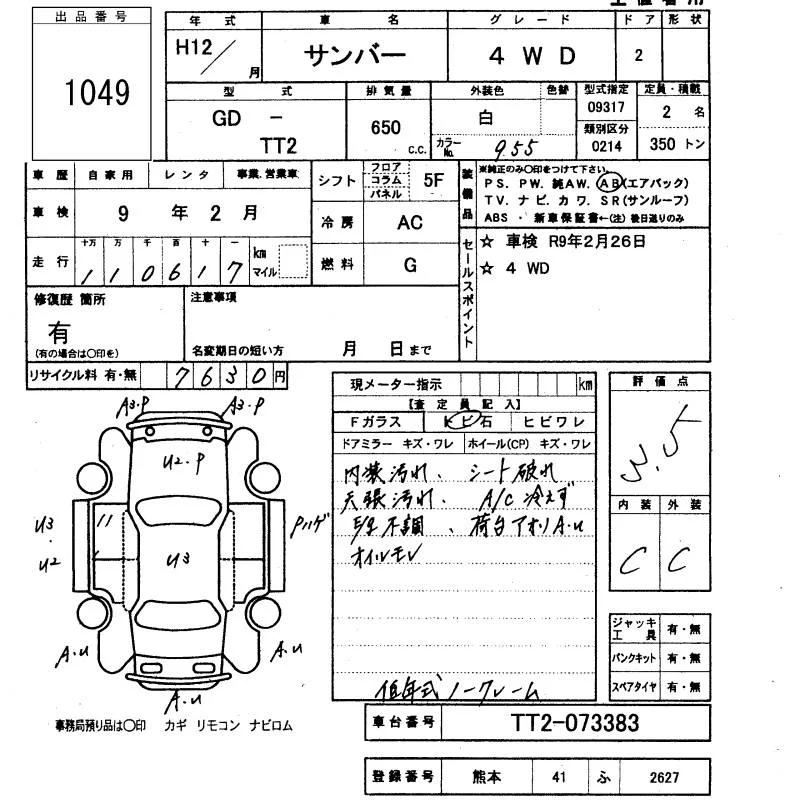 出品番号
1049
年式 車名 グレード ドア 形状
H12/月 サンバー 4WD 2
型式 排気量 外装色 色替 型式指定 定員・積載
GD - TT2 650 c.c. 白 09317 2 名
カラーNo. 955 類別区分 0214 350 トン
車歴 自家用 レンタ 事業.営業車 シフト フロア コラム パネル 5F
装備品 ※純正のみ〇印をつけて下さい。
PS. PW. 純AW. AB(エアバック)
TV. ナビ. カワ. SR(サンルーフ)
ABS ・ 新車保証書←(注)後日送りのみ
車検 9 年 2 月 冷房 AC
走行 十万 万 千 百 十 一
110617 km マイル 燃料 G
セールスポイント
☆ 車検 R9年2月26日
☆ 4 WD
修復歴 箇所 注意事項
有
(有の場合は〇印を) 名変期日の短い方 月 日まで
リサイクル料 有・無 7630円
現メーター指示 km
【査定員記入】
Fガラス トビ石 ヒビワレ
ドアミラー キズ・ワレ ホイール(CP) キズ・ワレ
内装汚れ、シート破れ
天張汚れ、A/C冷えず
不調、荷台アオリA.u
オイルモレ
低年式ノークレーム
評価点
3.5
内装 外装
C C
A3.P A3.P
U2.P
U3
U3
・
U2
Pハゲ
A.u A.u
A.u
ジャッキ工具 有・無
パンクキット 有・無
スペアタイヤ 有・無
事務局預り品は〇印 カギ リモコン ナビロム
車台番号 TT2-073383
登録番号 熊本 41 ふ 2627